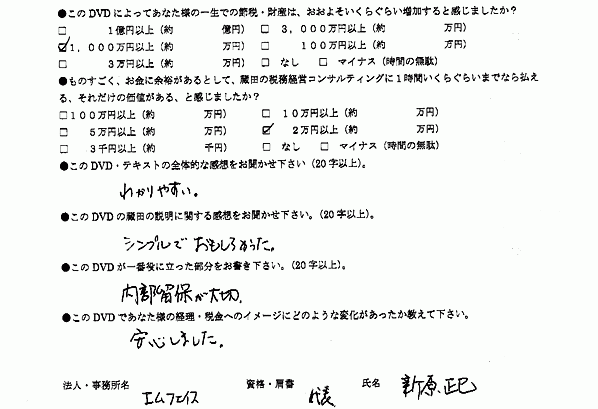 ●このDVDによってあなた様の一生での節税・財産は、おおよそいくらぐらい増加すると感じましたか？
□ 1億円以上（約 億円） □ 3，000万円以上（約 万円）
☑1，000万円以上（約 万円） □ 100万円以上（約 万円）
□ 3万円以上（約 万円） □ なし □ マイナス（時間の無駄）
●ものすごく、お金に余裕があるとして、蔵田の税務経営コンサルティングに1時間いくらぐらいまでなら払え
る、それだけの価値がある、と感じましたか？
□100万円以上（約 万円） □ 10万円以上（約 万円）
□ 5万円以上（約 万円） ☑ 2万円以上（約 万円）
□ 3千円以上（約 千円） □ なし □ マイナス（時間の無駄）
●このDVD・テキストの全体的な感想をお聞かせ下さい（20字以上）。
わかりやすい。
●このDVDの蔵田の説明に関する感想をお聞かせ下さい。（20字以上）。
シンプルで おもしろかった。
●このDVDが一番役に立った部分をお書き下さい。（20字以上）。
内部留保が大切。
●このDVDであなた様の経理・税金へのイメージにどのような変化があったか教えて下さい。
安心しました。
法人・事務所名 エムフェイス 資格・肩書 代表 氏名 新原 正巳